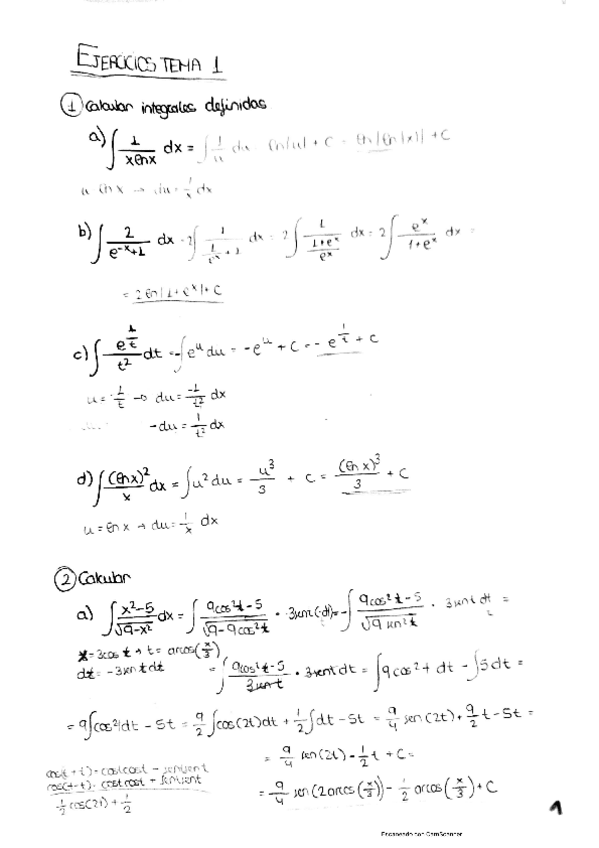 EJERCICIOS TEMA 1
① Calcular integrales definidas
a) ∫ 1/(x ln x) dx = ∫ 1/u du = ln|u| + C = ln|ln|x|| + C
u = ln x → du = 1/x dx
b) ∫ 2/(e^-x+1) dx = 2∫ 1/(1/e^x + 1) dx = 2∫ 1/((1+e^x)/e^x) dx = 2∫ e^x/(1+e^x) dx =
= 2 ln|1+e^x| + C
c) ∫ e^(1/t)/t² dt = -∫ e^u du = -e^u + C = -e^(1/t) + C
u = 1/t → du = -1/t² dx
-du = 1/t² dx
d) ∫ (ln x)²/x dx = ∫ u² du = u³/3 + C = (ln x)³/3 + C
u = ln x → du = 1/x dx
② Calcular
a) ∫ (x²-5)/√(9-x²) dx = ∫ (9cos²t-5)/√(9-9cos²t) · 3sent(-dt) = -∫ (9cos²t-5)/√(9sen²t) · 3sent dt =
x = 3cos t → t = arcos(x/3)
dx = -3sen t dt
= ∫ (9cos²t-5)/(3sen t) · 3sent dt = ∫ 9cos²t dt - ∫ 5dt =
= 9∫cos²t dt - 5t = 9/2 ∫ cos(2t)dt + 1/2 ∫ dt - 5t = 9/4 sen(2t) + 9/2 t - 5t =
= 9/4 sen(2t) - 1/2 t + C =
cos(t+t) = cost cost - sent sent
cos(t-t) = cost cost + sent sent
1/2 cos(2t) + 1/2
= 9/4 sen(2arcos(x/3)) - 1/2 arcos(x/3) + C
1
Escaneado con CamScanner